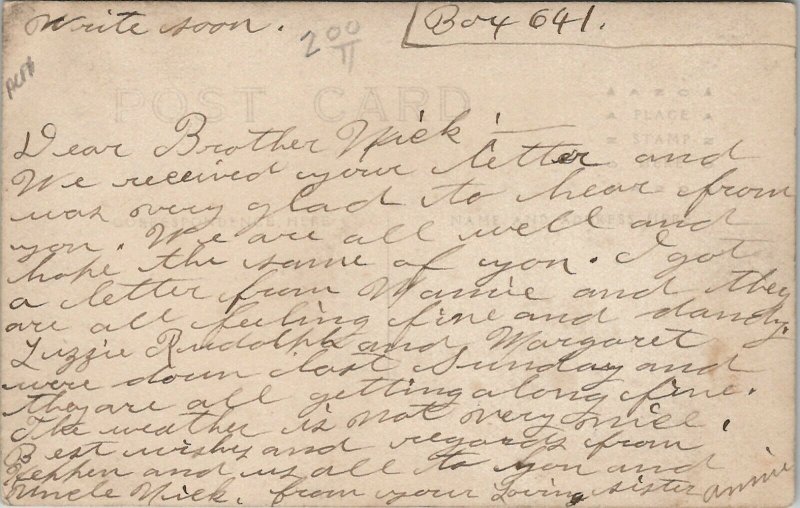 Write soon.
Box 641.
2 00
POST CARD
PLACE
STAMP
Dear Brother Nick
We received your letter and
was very glad to hear from
CORRESPONDENCE HERE
NAME AND ADDRESS HERE
you. We are all well and
hope the same of you. I got
a letter from Mamie and they
are all feeling fine and dandy.
Lizzie Rudolph and Margaret
were down last Sunday and
they are all getting along fine.
The weather is not very nice.
Best wishes and regards from
Stephen and us all to you and
Uncle Nick. from your loving sister Annie